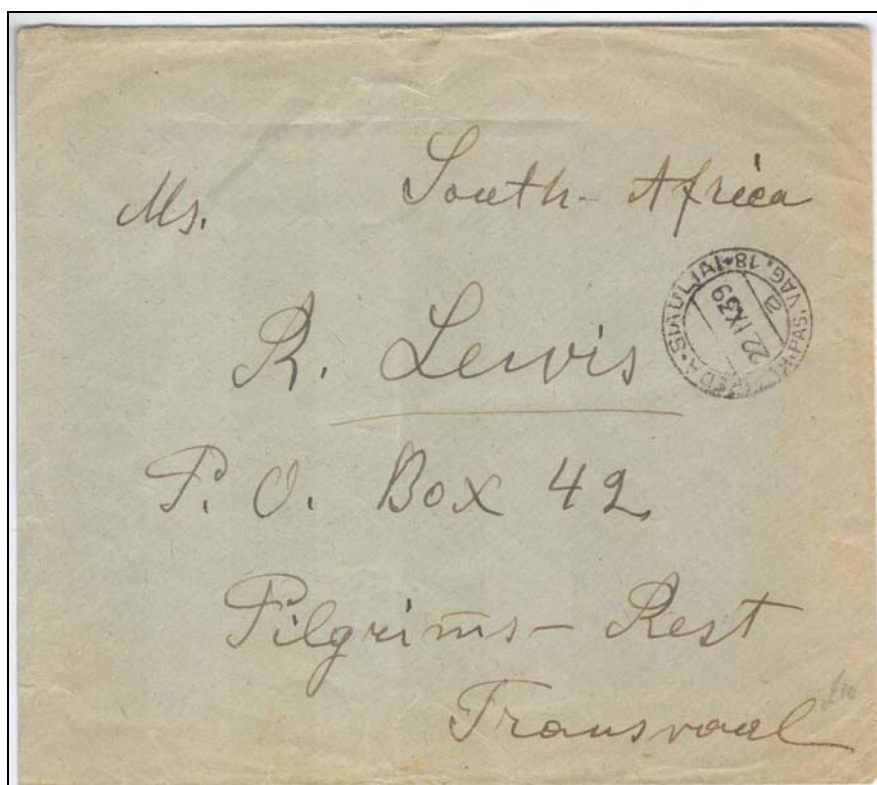 South-Africa
Ms.
R. Lewis
P. O. Box 42
Pilgrims-Rest
Transvaal
ŠIAULIAI
PAS. VAG. 18
22 IX 39
a